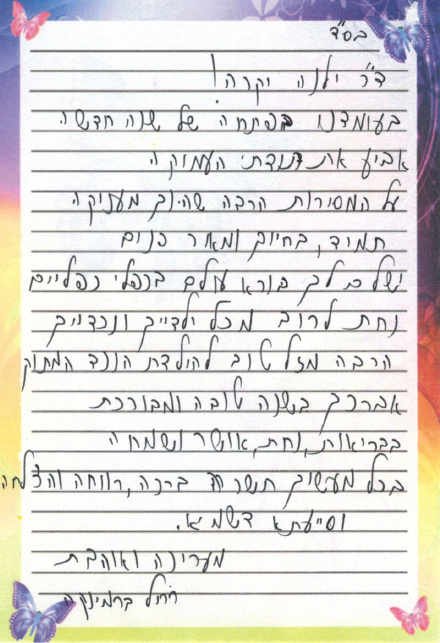 בס"ד
ד"ר ילנה יקרה!
בעומדנו בפתחה של שנה חדשה
אביע את תודתי העמוקה
על המסירות הרבה שהינך מעניקה
תמיד, בחיוך ומאור פנים
ישלם לך בורא עולם בכפלי כפליים
נחת לרוב מכל ילדייך ונכדייך
הרבה מזל טוב להולדת הנכד המתוק
אברכך בשנה טובה ומבורכת
בבריאות, נחת, אושר ושמחה
בכל מעשיך תשרה ברכה, רווחה והצלחה
וסייעתא דשמיא.
מעריכה ואוהבת
רחל